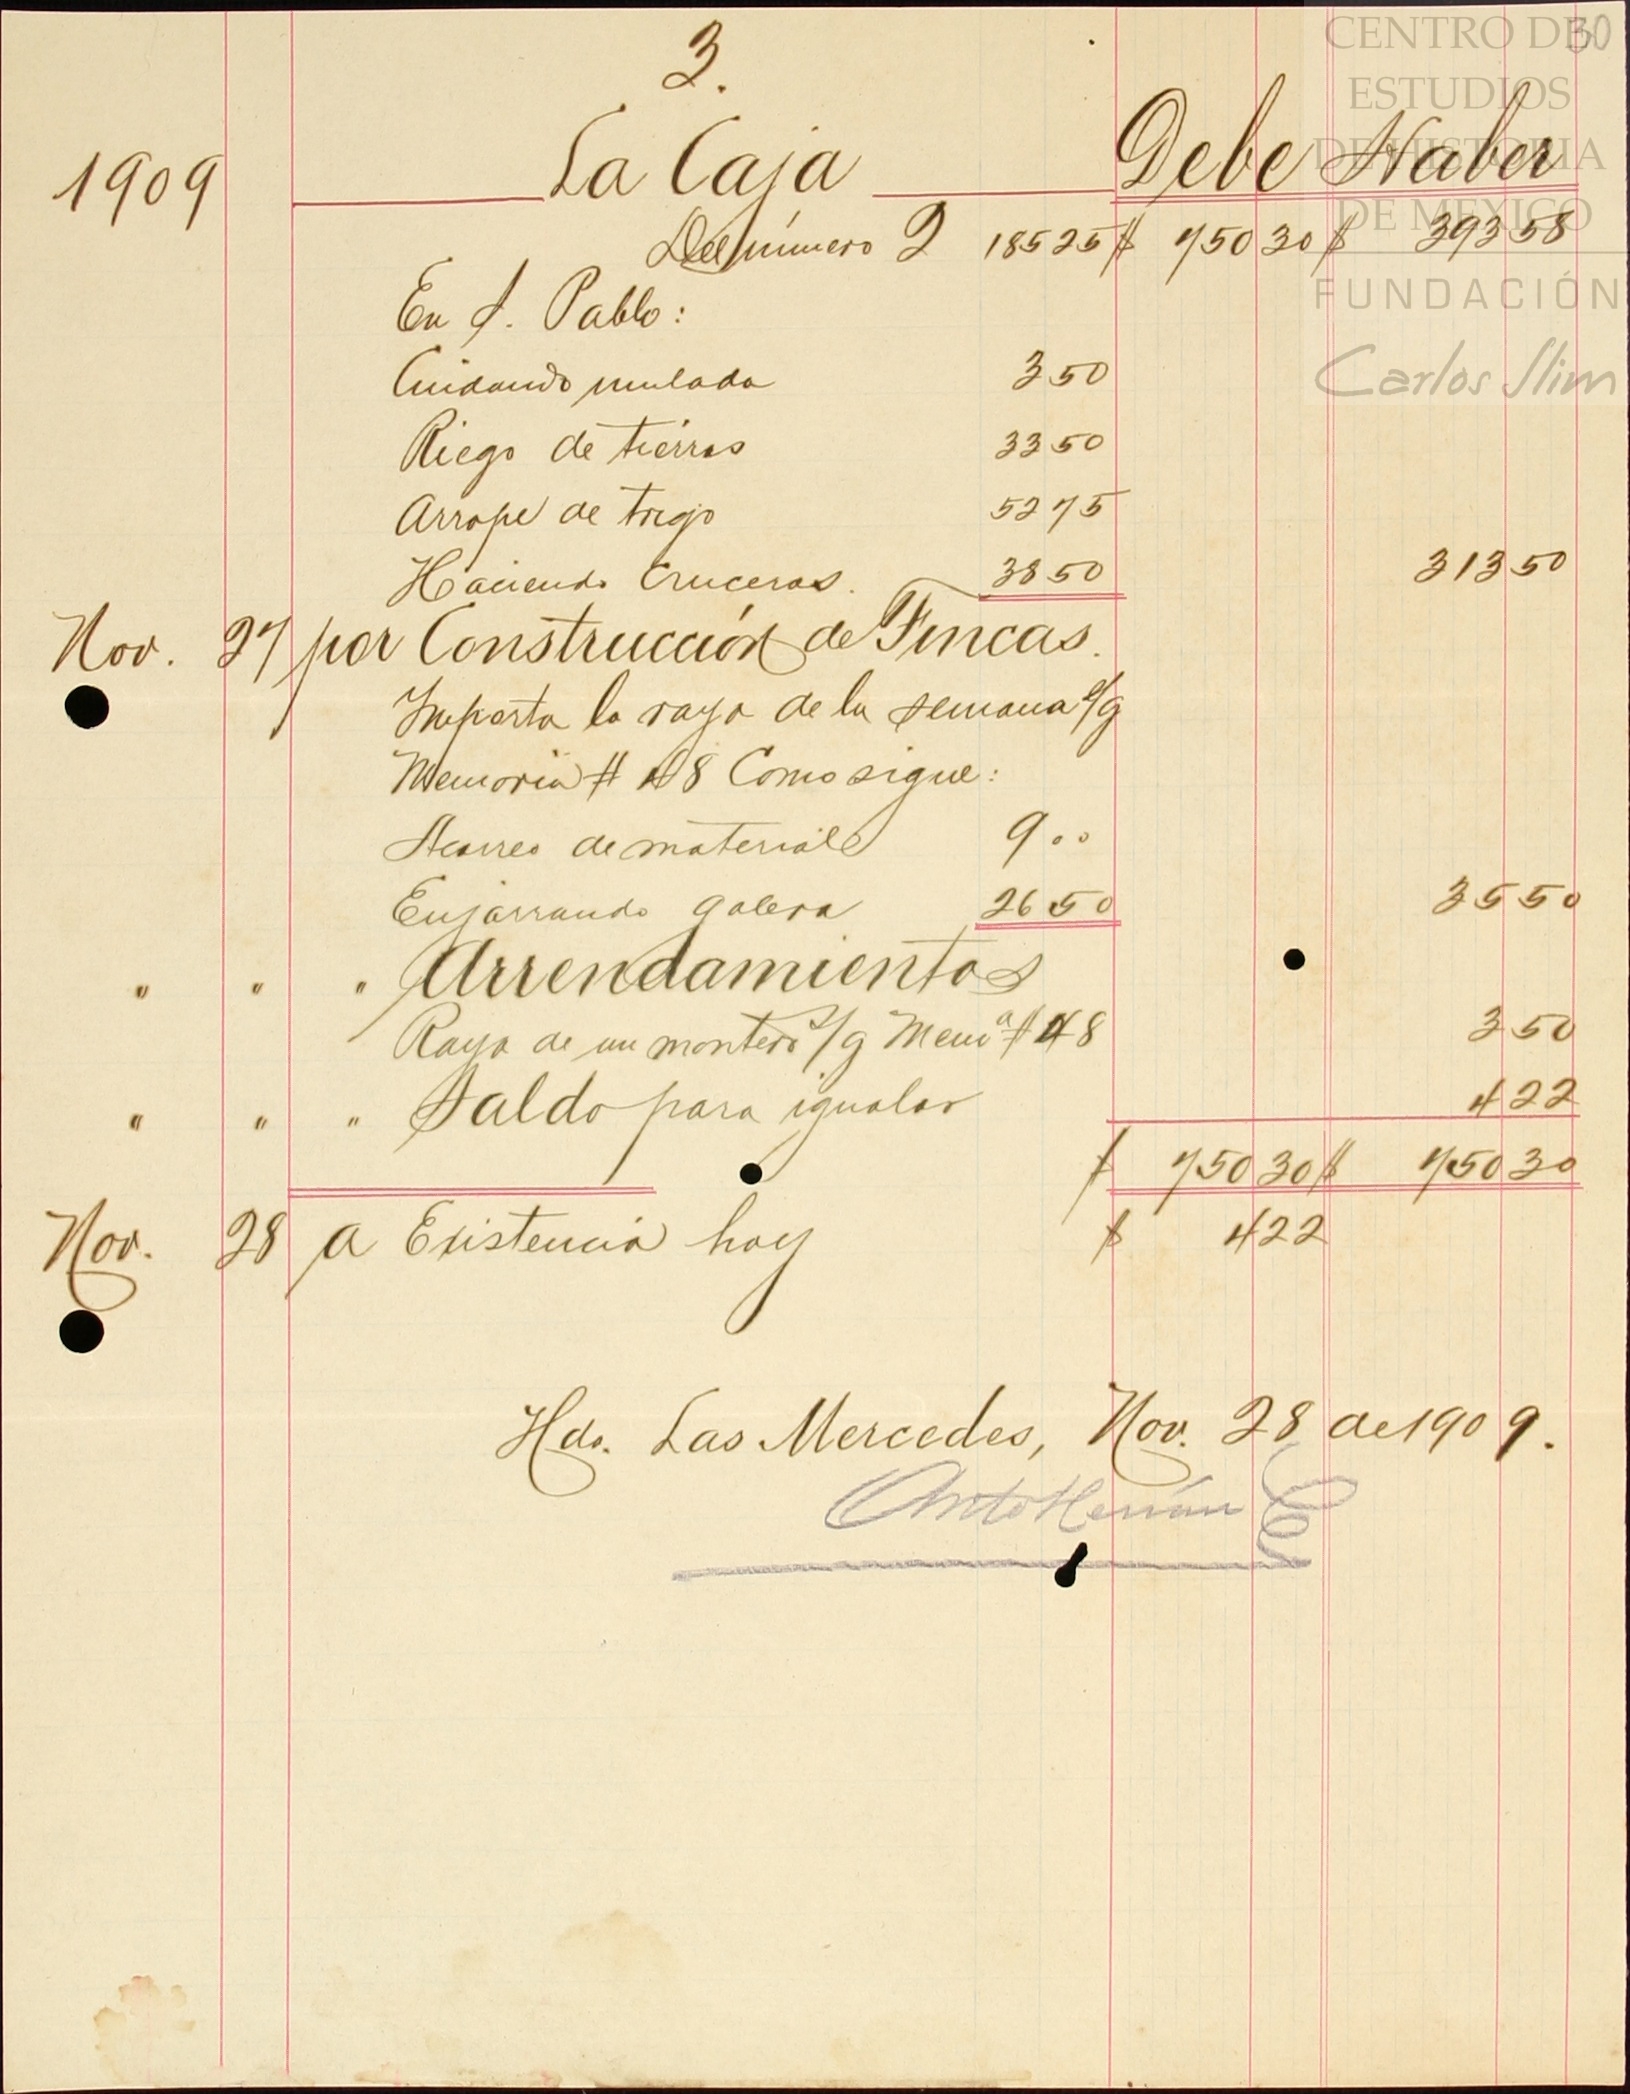 3.
30
CENTRO DE
ESTUDIOS
DE HISTORIA
DE MEXICO
FUNDACIÓN
Carlos Slim
1909 La Caja Debe Haber
Del número 2 185 25 $ 750 30 $ 393 58
En S. Pablo:
Cuidando mulada 3 50
Riego de tierras 33 50
Arrope de trigo 52 75
Haciendo Cruceras. 38 50 313 50
Nov. 27 por Construcción de Fincas.
Importa la raya de la semana s/g
Memoria # 48 Como sigue:
Acarreo de material 9 00
Enjarrando galera 26 50 35 50
" " " Arrendamientos
Raya de un montero s/g Mema # 48 3 50
" " " Saldo para igualar 4 22
$ 750 30 $ 750 30
Nov. 28 a Existencia hoy $ 4 22
Hda. Las Mercedes, Nov. 28 de 1909.